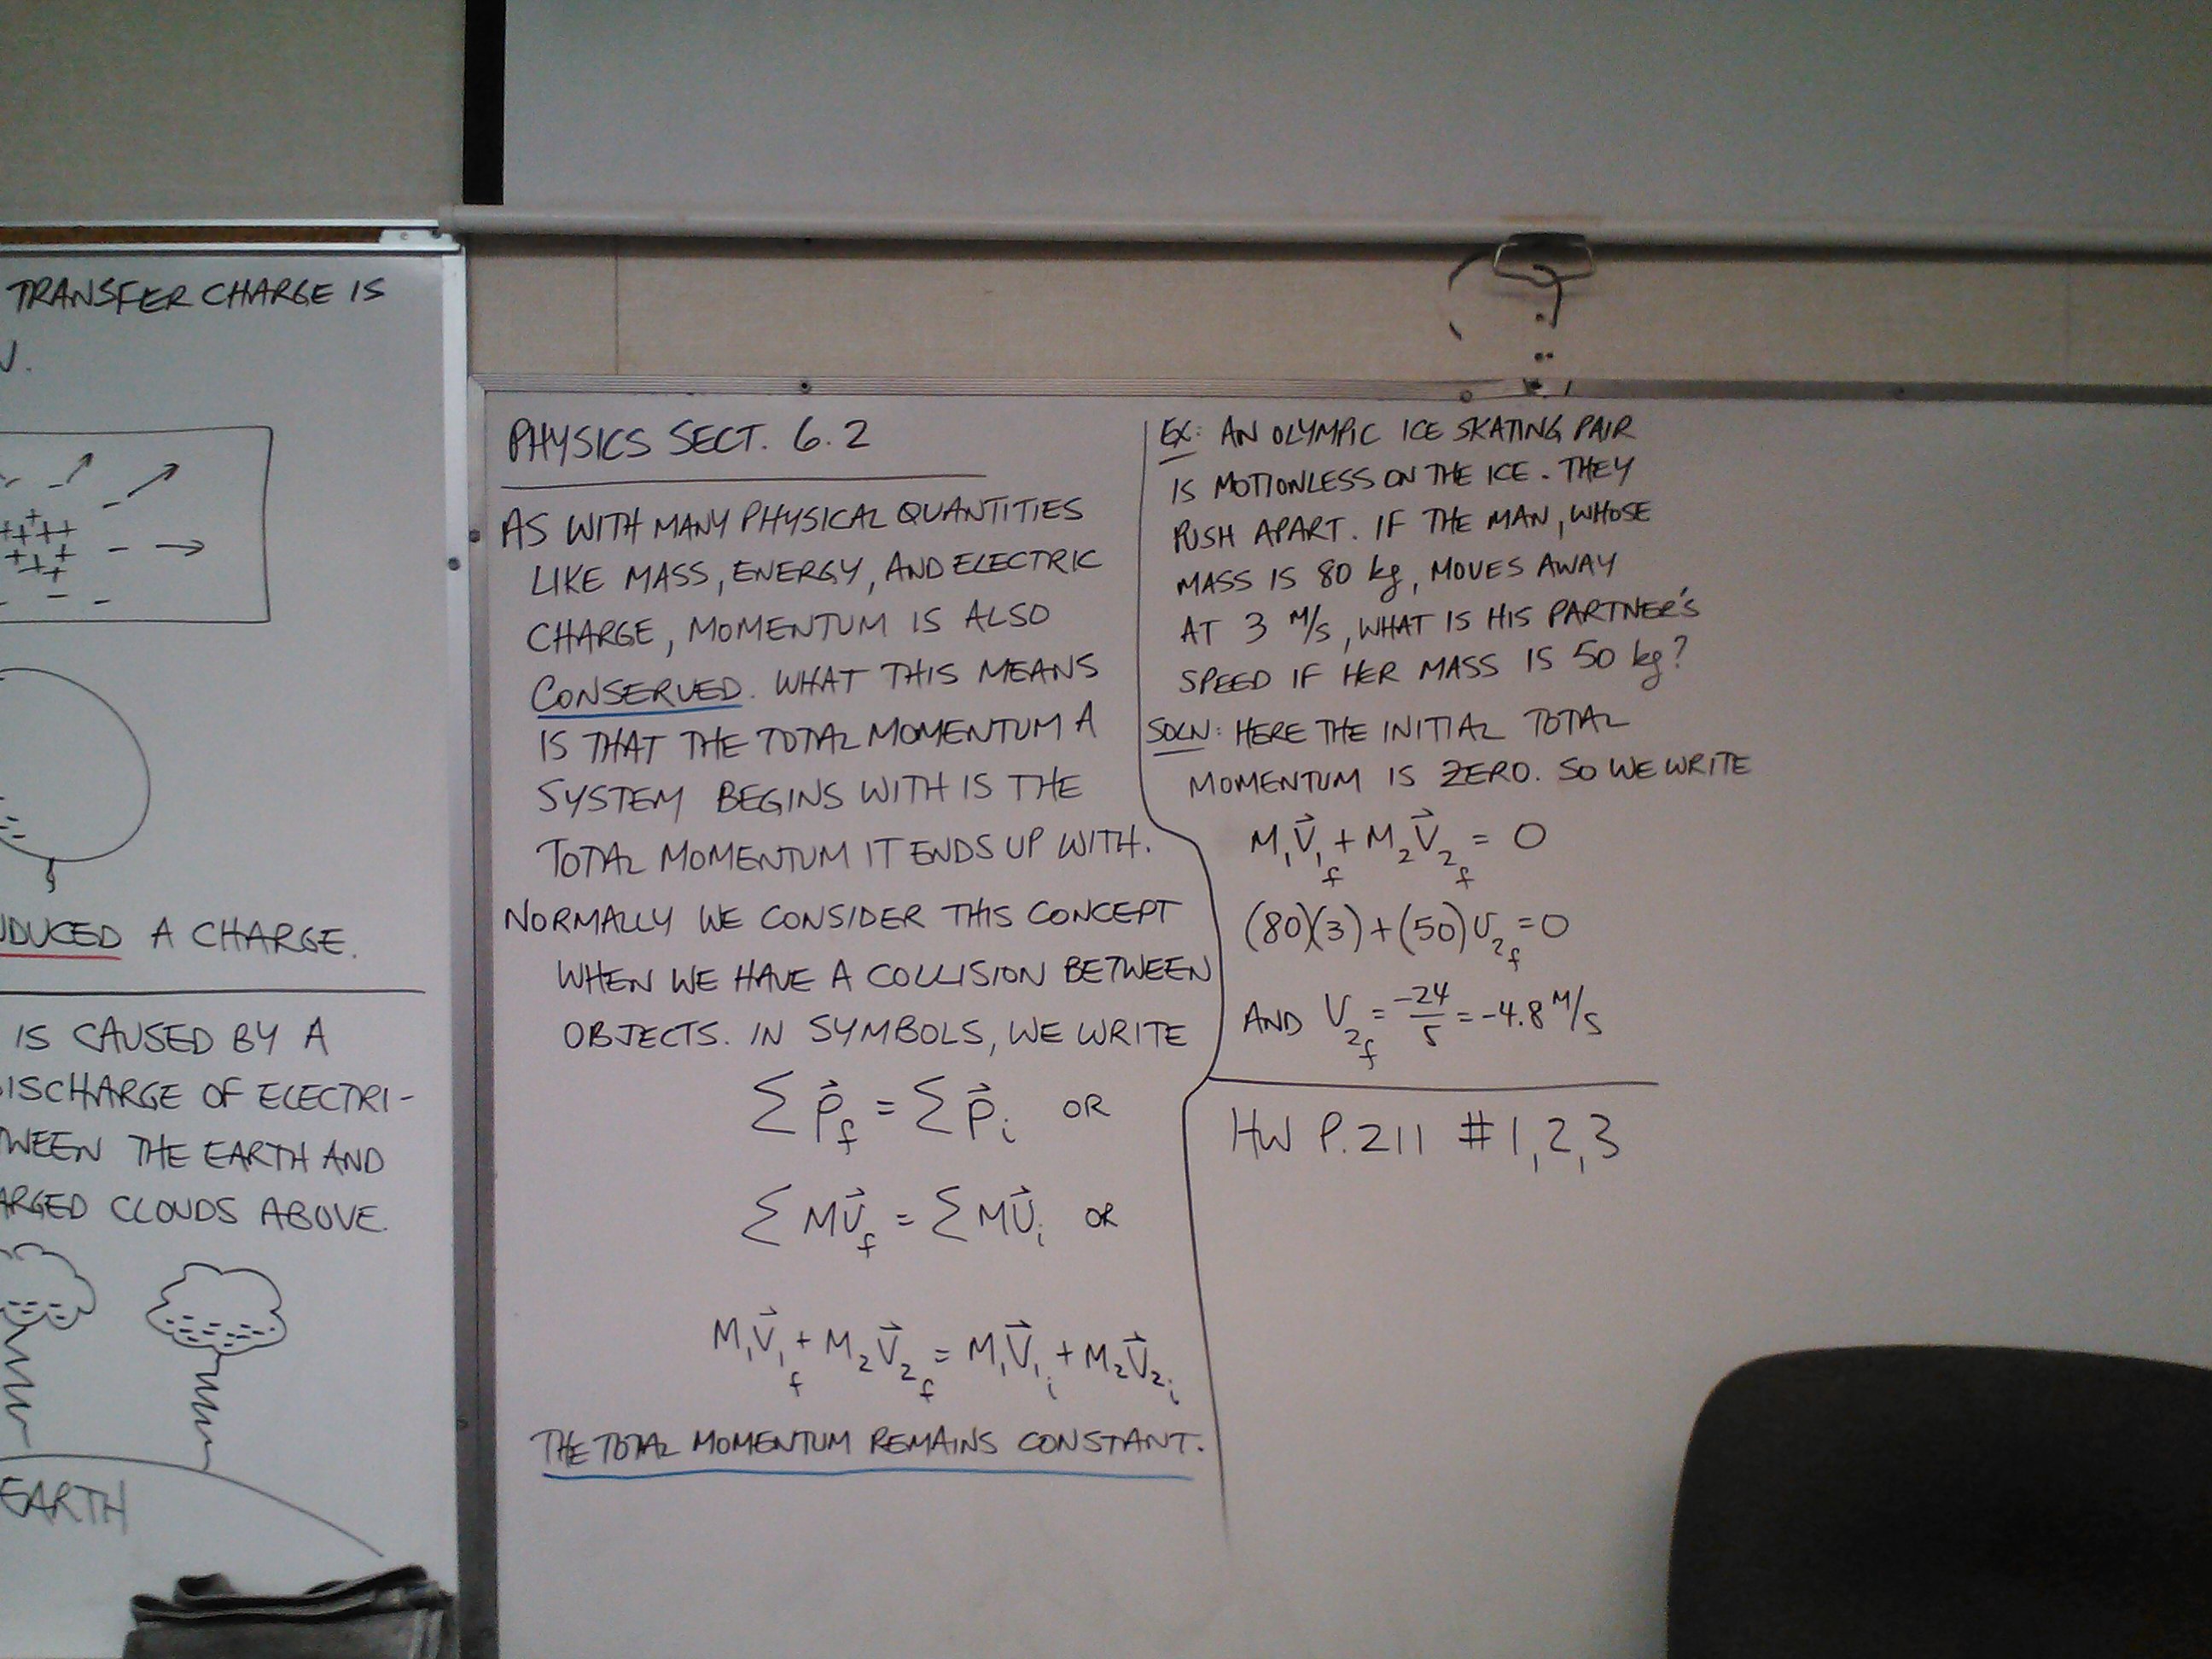 TRANSFER CHARGE IS
+
++++
+++
+++
DUCED A CHARGE.
IS CAUSED BY A
DISCHARGE OF ELECTRI-
TWEEN THE EARTH AND
ARGED CLOUDS ABOVE.
EARTH
PHYSICS SECT. 6.2
AS WITH MANY PHYSICAL QUANTITIES
LIKE MASS, ENERGY, AND ELECTRIC
CHARGE, MOMENTUM IS ALSO
CONSERVED. WHAT THIS MEANS
IS THAT THE TOTAL MOMENTUM A
SYSTEM BEGINS WITH IS THE
TOTAL MOMENTUM IT ENDS UP WITH.
NORMALLY WE CONSIDER THIS CONCEPT
WHEN WE HAVE A COLLISION BETWEEN
OBJECTS. IN SYMBOLS, WE WRITE
Σ p⃗_f = Σ p⃗_i OR
Σ Mv⃗_f = Σ Mv⃗_i OR
M₁V⃗₁_f + M₂V⃗₂_f = M₁V⃗₁_i + M₂V⃗₂_i
THE TOTAL MOMENTUM REMAINS CONSTANT.
EX: AN OLYMPIC ICE SKATING PAIR
IS MOTIONLESS ON THE ICE. THEY
PUSH APART. IF THE MAN, WHOSE
MASS IS 80 kg, MOVES AWAY
AT 3 M/S, WHAT IS HIS PARTNER'S
SPEED IF HER MASS IS 50 kg?
SOLN: HERE THE INITIAL TOTAL
MOMENTUM IS ZERO. SO WE WRITE
M₁V⃗₁_f + M₂V⃗₂_f = 0
(80)(3) + (50)V₂_f = 0
AND V₂_f = -24/5 = -4.8 M/S
HW P. 211 #1,2,3